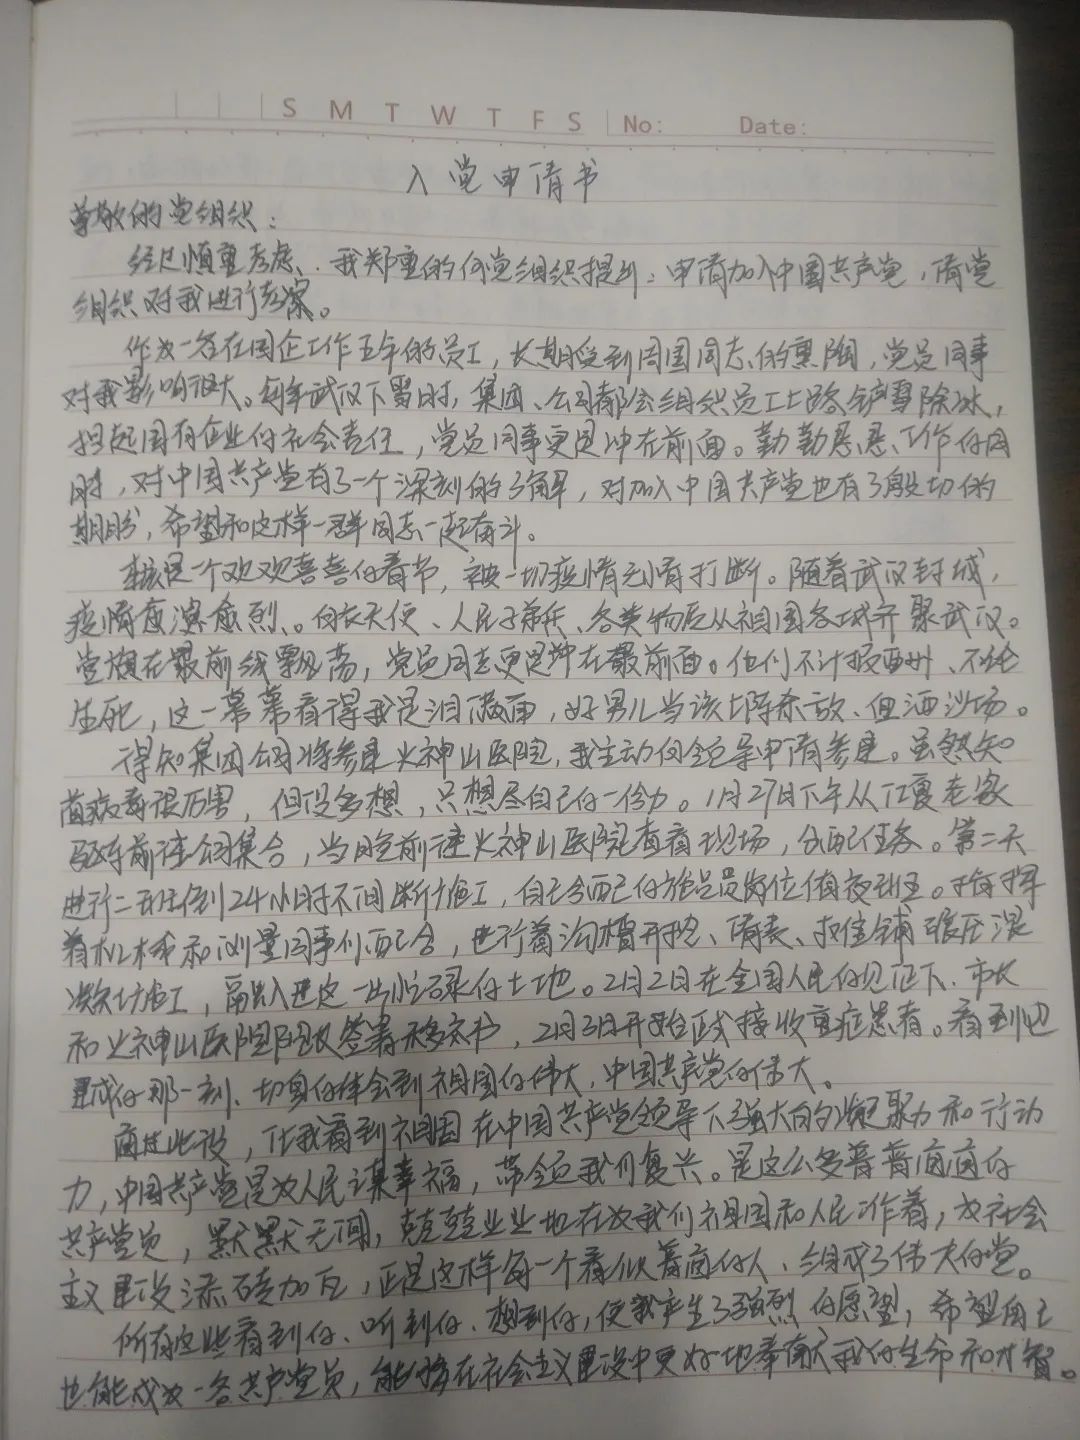 S M T W T F S No: Date:
入党申请书
尊敬的党组织：
经过慎重考虑，我郑重的向党组织提出：申请加入中国共产党，请党
组织对我进行考察。
作为一名在国企工作五年的员工，长期受到周围同志的熏陶，党员同事
对我影响很大。每年武汉下雪时，集团、公司都会组织员工上路铲雪除冰，
担起国有企业的社会责任，党员同事更是冲在前面。勤勤恳恳工作的同
时，对中国共产党有了一个深刻的了解，对加入中国共产党也有了殷切的
期盼，希望和这样一群同志一起奋斗。
本该是一个欢欢喜喜的春节，被一切疫情无情打断。随着武汉封城，
疫情愈演愈烈、白衣天使、人民子弟兵、各类物质从祖国各域齐聚武汉。
党旗在最前线飘荡，党员同志更是冲在最前面。他们不计报酬、不论
生死，这一幕幕看得我是泪满面，好男儿当该上阵杀敌、血洒沙场。
得知集团公司将参建火神山医院，我主动向领导申请参建。虽然知
道病毒很厉害，但没多想，只想尽自己的一份力。1月27日下午从江夏老家
驱车前往公司集合，当晚前往火神山医院查看现场，分配任务。第二天
进行二班倒24小时不间断施工，自己分配的施工员岗位值夜班。指挥
着机械和测量同事们配合，进行着沟槽开挖、清表、摊铺碾压混
凝土施工，融入进这一片忙碌的土地。2月2日在全国人民的见证下，市长
和火神山医院院长签署移交书，2月3日开始正式接收重症患者。看到它
建成的那一刻、切身的体会到祖国的伟大，中国共产党的伟大。
通过此役，让我看到祖国在中国共产党领导下强大的凝聚力和行动
力，中国共产党是为人民谋幸福，带领我们复兴。是这么多普普通通的
共产党员，默默无闻，兢兢业业地在为我们祖国和人民工作着，为社会
主义建设添砖加瓦，正是这样每一个看似普通的人、组成了伟大的党。
所有这些看到的、听到的、想到的，使我产生了强烈的愿望，希望自己
也能成为一名共产党员，能够在社会主义建设中更好地奉献我的生命和才智。